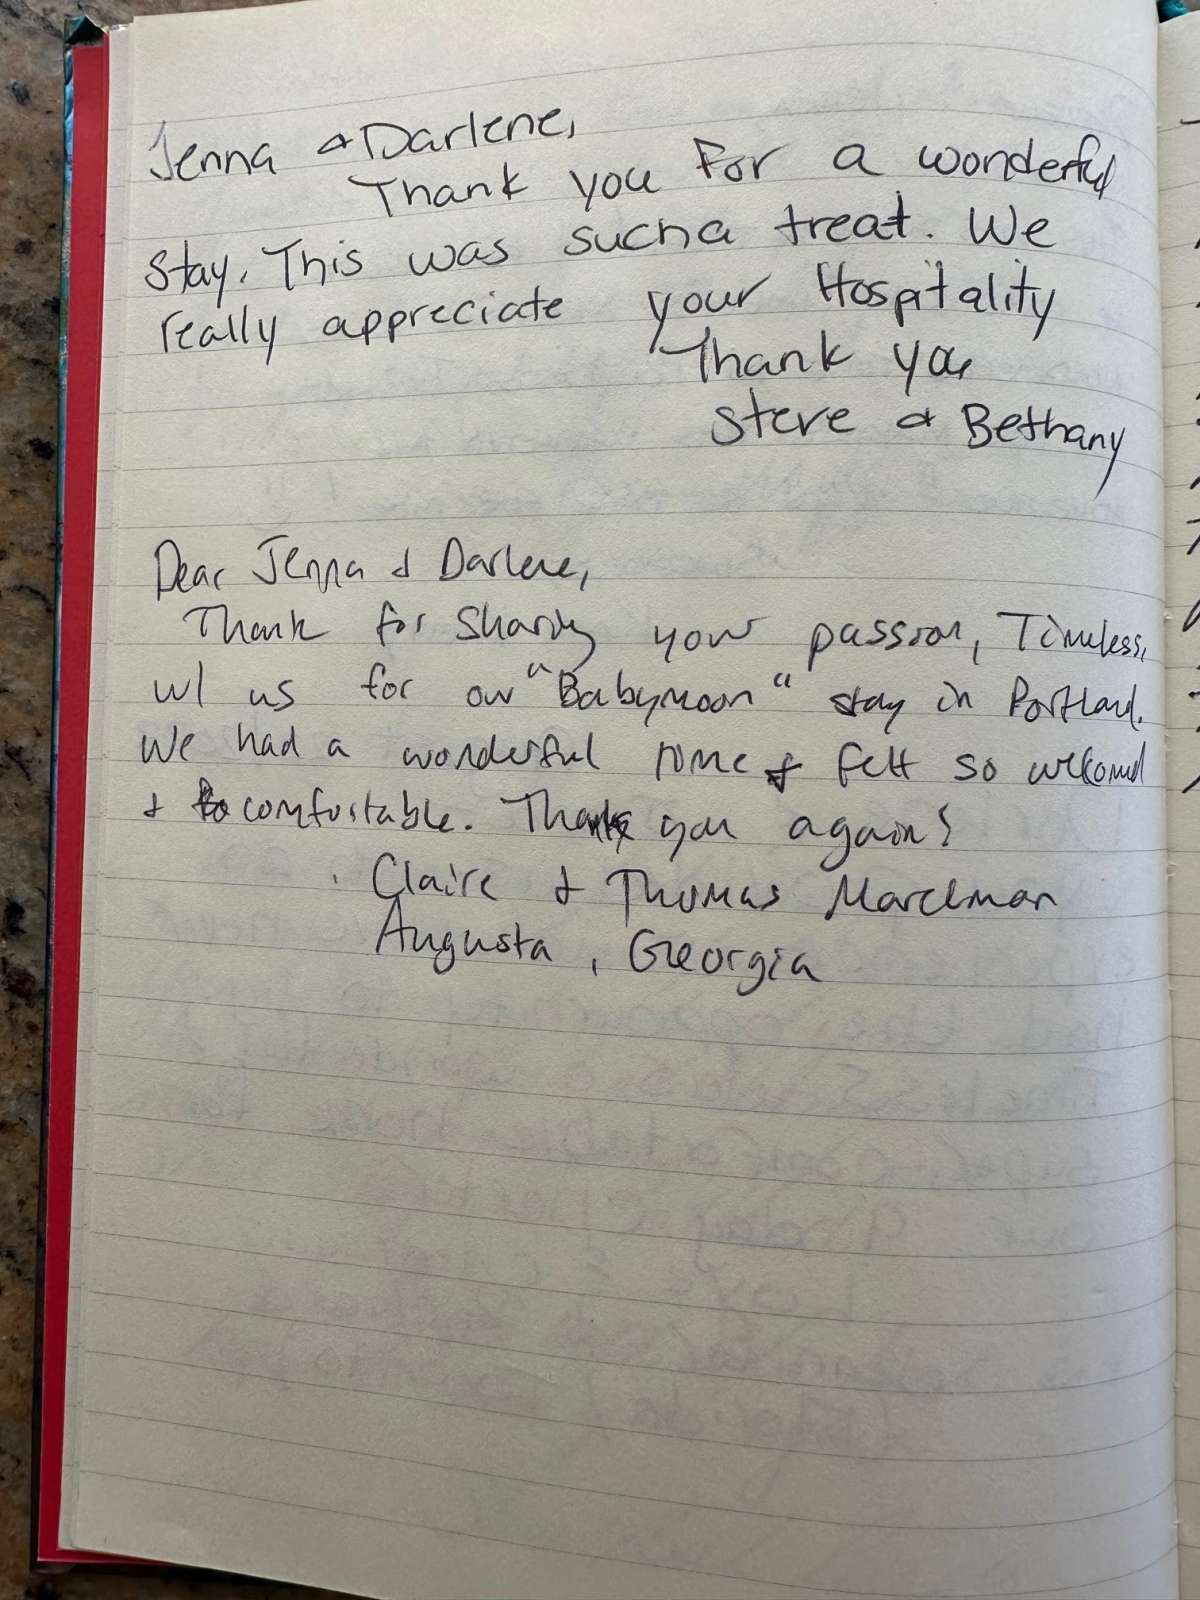 Jenna & Darlene,
Thank you For a wonderful
stay. This was such a treat. We
really appreciate your Hospitality
Thank you
Steve & Bethany
Dear Jenna & Darlene,
Thank for Sharing your passion, Timeless,
w/ us for our "Babymoon" stay in Portland.
We had a wonderful time & felt so welcomed
& comfortable. Thank you again!
Claire & Thomas
Augusta, Georgia